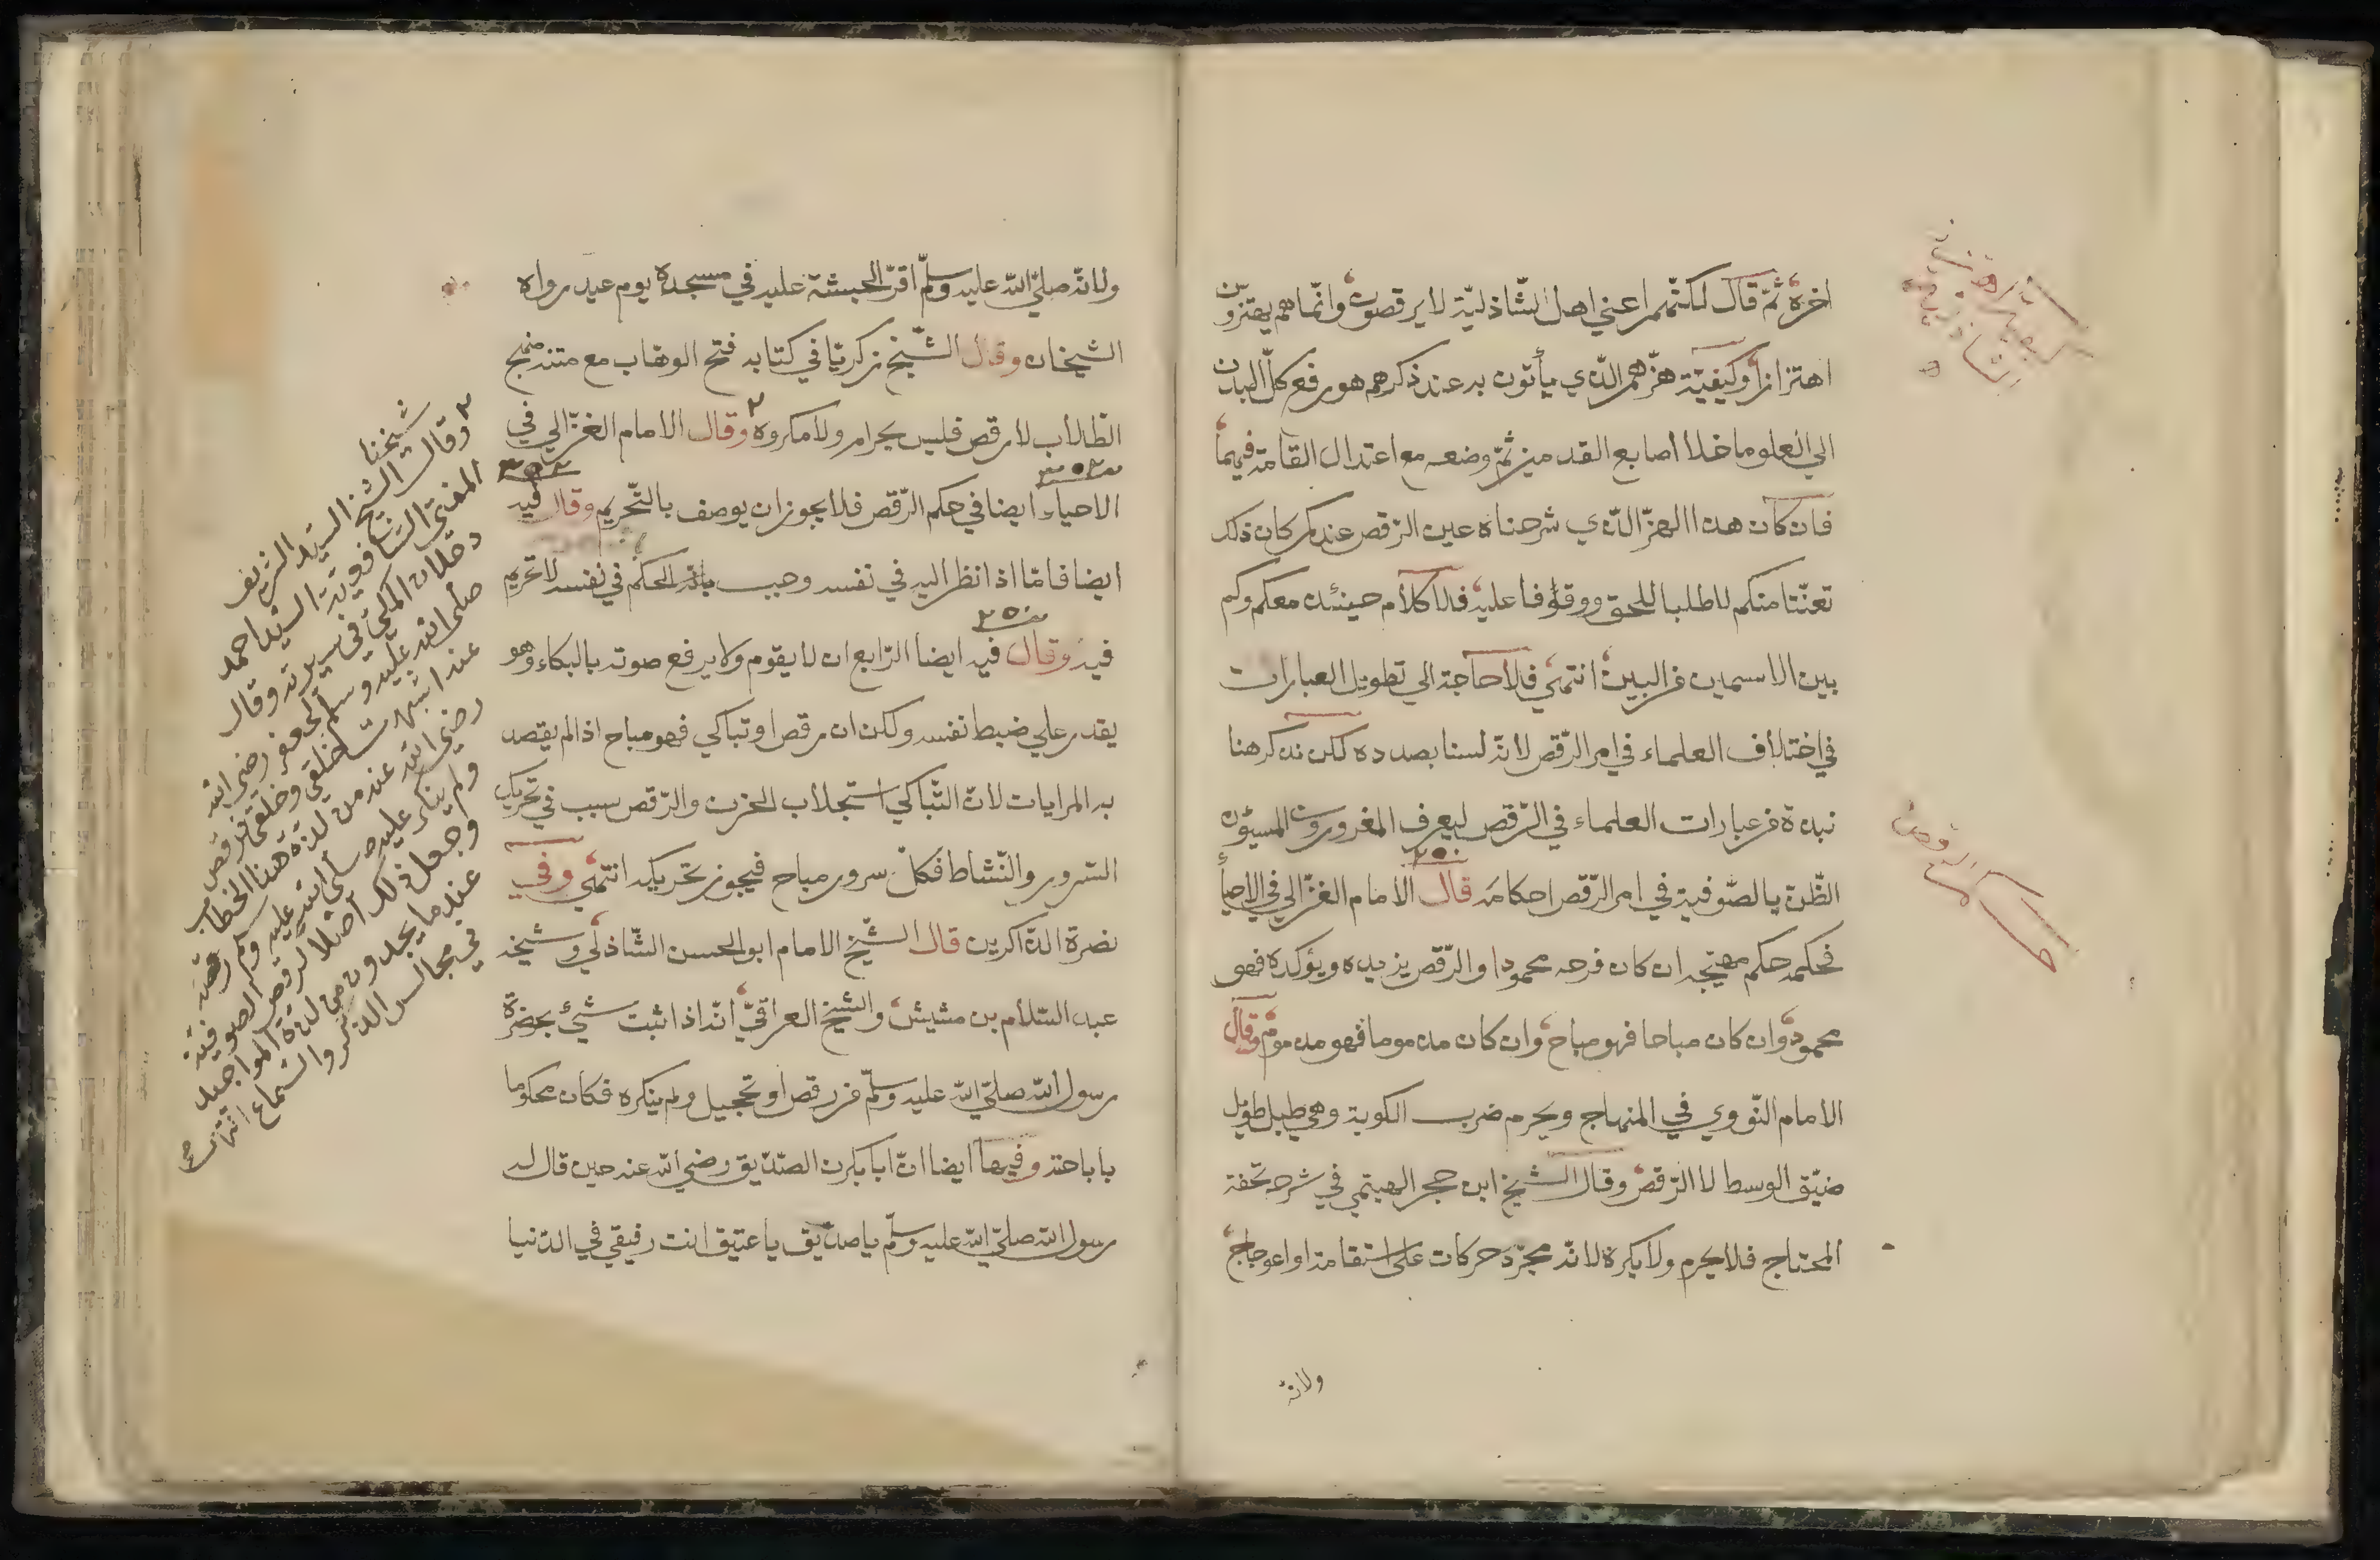 اخره ثمّ قال لكنّهم اعني اهل الشّاذليّة لا يرقصون وانّما هم يهتزّون
اهتزازا وكيفيّة هزّهم الّذي يأتون به عند ذكرهم هو رفع كلّ البدن
الي العلو ما خلا أصابع القدمين ثمّ وضعه مع اعتدال القامة فيهما
فان كان هذا الهزّ الّذي شرحناه عين الرّقص عندكم كان ذلك
تعنّتا منكم لا طلبا للحق ووقوفا عليه فلا كلام حينئذ معكم وكم
بين الاسمين من البين انتهي فلا حاجة الي تطويل العبارات
في اختلاف العلماء في امر الرّقص لانّه لسنا بصدده لكن نذكر هنا
نبذة من عبارات العلماء في الرّقص ليعرف المغرورون المسيؤن
الظّنّ بالصّوفية في امر الرّقص احكامه قال الامام الغزّالي في الاحيأ
فحكمه حكم مهيّجه ان كان فرحه محمودا والرّقص يزيده ويؤكده فهو
محمود وان كان مباحا فهو مباح وان كان مذموما فهو مذموم وقال
الامام النّووي في المنهاج ويحرم ضرب الكوبة وهي طبل طويل
ضيّق الوسط لا الرّقص وقال الشيخ ابن حجر الهيتمي في شرحه تحفة
المحتاج فلا يحرم ولا يكره لانّه مجرّد حركات على استقامة او اعوجاج
ولانّه
حكم الرقص
ولانّه صلّي الله عليه وسلّم اقرّ الحبشة عليه في مسجده يوم عيد رواه
الشيخان وقال الشّيخ زكريّا في كتابه فتح الوهاب مع متنه منهج
الطّلاب لا رقص فليس بحرام ولا مكروه ٢ وقال الامام الغزّالي في
الاحياء ايضا في حكم الرّقص فلا يجوز ان يوصف بالتّحريم وقال فيه
ايضا فامّا اذا نظر اليه في نفسه وجب بانّه الحكم في نفسه لا تحريم
فيه وقال فيه ايضا الرّابع ان لا يقوم ولا يرفع صوته بالبكاء وهو
يقدر علي ضبط نفسه ولكن ان رقص او تباكي فهو مباح اذا لم يقصد
به المرايات لانّ التّباكي استجلاب للحزن والرّقص سبب في تحريك
السّرور والنّشاط فكلّ سرور مباح فيجوز تحريكه انتهي وفي
نصرة الذّاكرين قال الشّيخ الامام ابو الحسن الشّاذلي وشيخه
عبد السّلام بن مشيش والشيخ العراقيّ انّه اذا ثبت شئ بحضرة
رسول الله صلّي الله عليه وسلّم من رقص او تحجيل ولم ينكره فكان محكوما
باباحته وفيها ايضا انّ ابا بكرن الصّدّيق رضي الله عنه حين قال له
رسول الله صلّي الله عليه وسلّم يا صدّيق يا عتيق انت رفيقي في الدّنيا
٢ وقال شيخنا الشيخ السيّد الشريف
المفتي الشافعية السيّد احمد
دحلان المكّي في سيرته وقال
صلّي الله عليه وسلّم لجعفر رضي الله
عنه اشبهت خلقي وخلقي فرقص
رضي الله عنه من لذّة هذا الخطاب
ولم ينكر عليه صلّي الله عليه وسلّم رقصه
وجعل ذلك اصلا لرقص الصوفيّة
عندما يجدون من لذّة المواجيد
في مجالس الذكر والسّماع انتهي